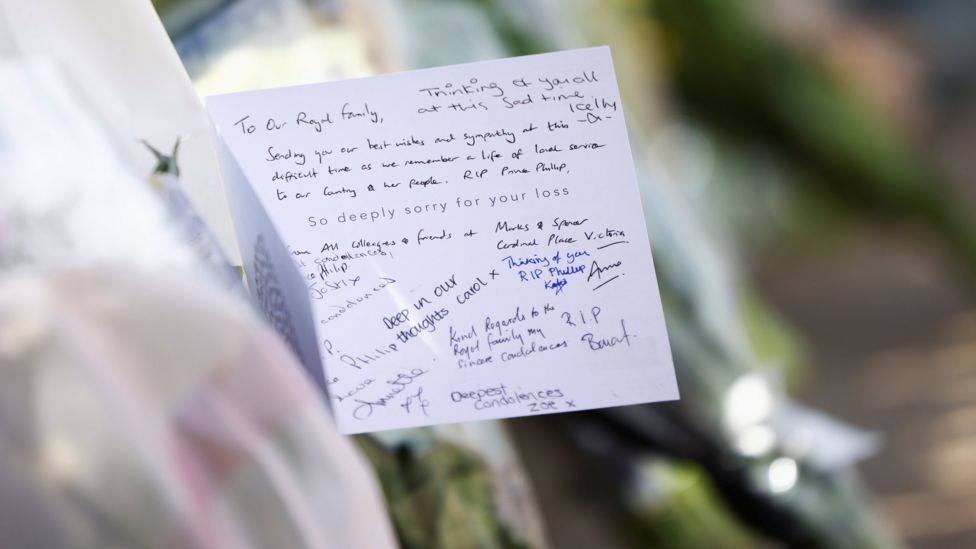 Thinking of you all
at this sad time.
To Our Royal Family,
Sending you our best wishes and sympathy at this
difficult time as we remember a life of loyal service
to our Country & her people. RIP Prince Phillip.
So deeply sorry for your loss
All colleagues & friends at Marks & Spencer
Cardinal Place Victoria
condolences,
Philip
condolences
Deep in our
thoughts Carol x
Thinking of you
RIP Phillip
Anne
Kind Regards to the
Royal family my
sincere condolences
RIP
P.
Philip
Annette
Deepest
Condolences
Zoe x